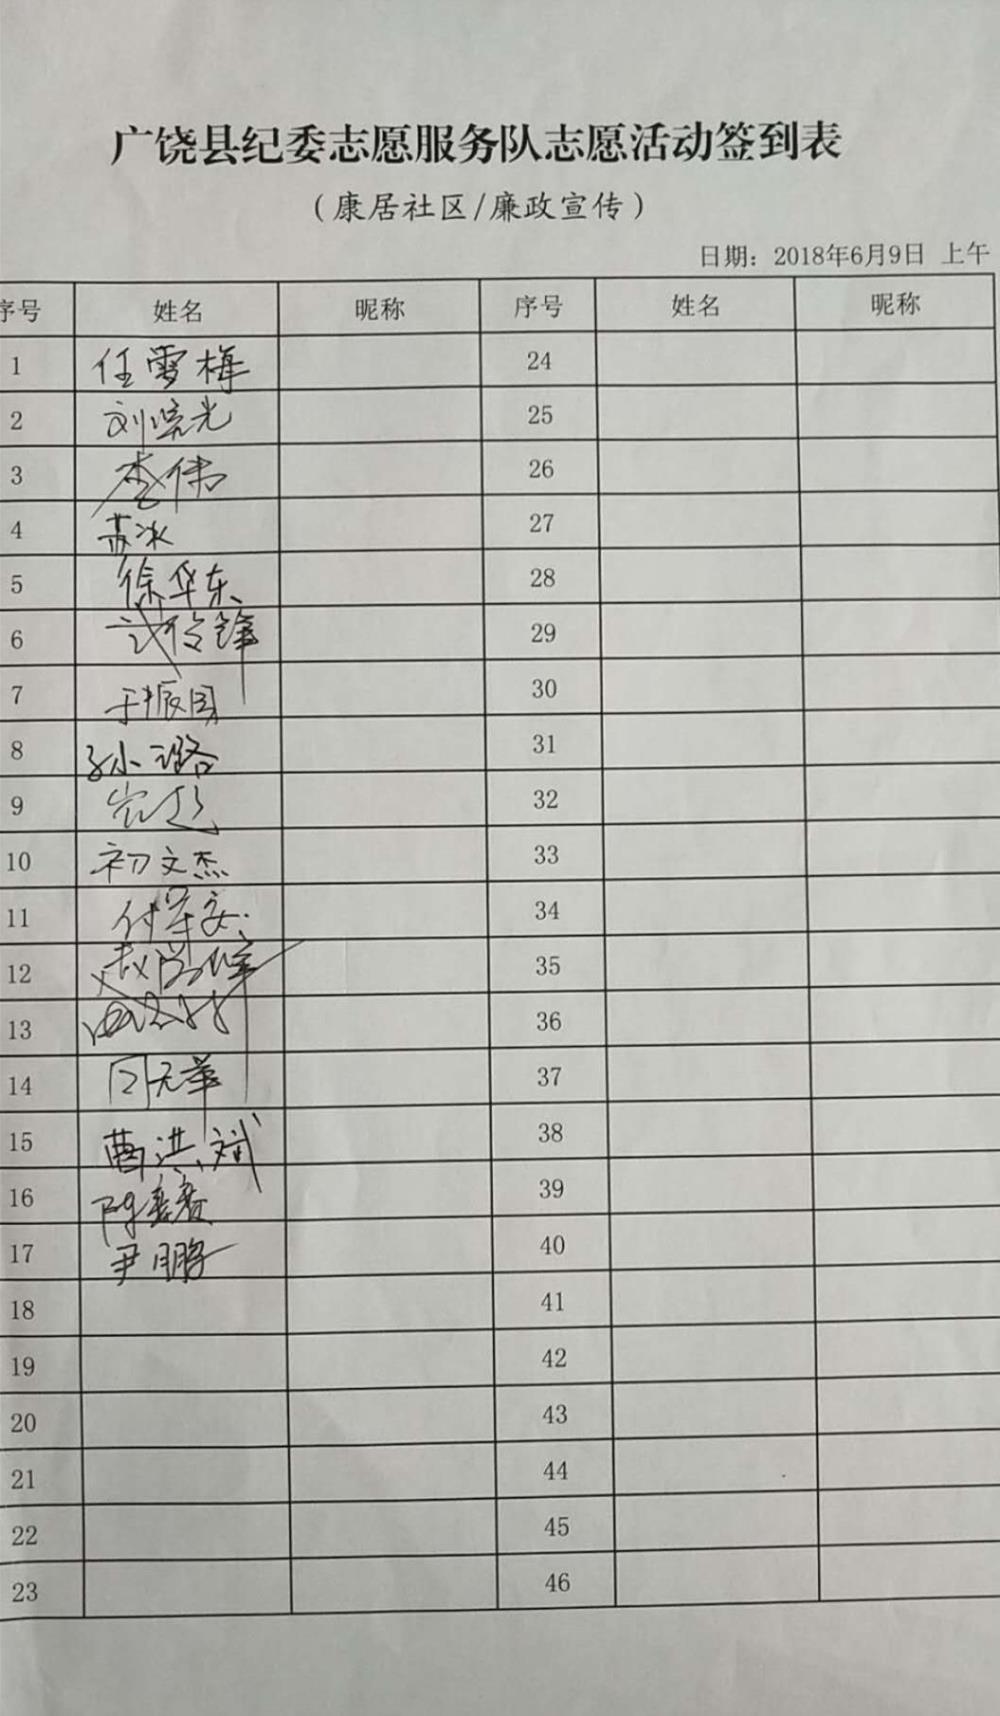 广饶县纪委志愿服务队志愿活动签到表
(康居社区/廉政宣传)
日期：2018年6月9日 上午
序号 姓名 昵称 序号 姓名 昵称
1 任雪梅 24
2 刘晓光 25
3 李伟 26
4 苏冰 27
5 徐华东 28
6 29
7 于振国 30
8 孙璐 31
9 32
10 初文杰 33
11 付军安 34
12 35
13 36
14 闫元华 37
15 曹洪斌 38
16 39
17 尹鹏 40
18 41
19 42
20 43
21 44
22 45
23 46